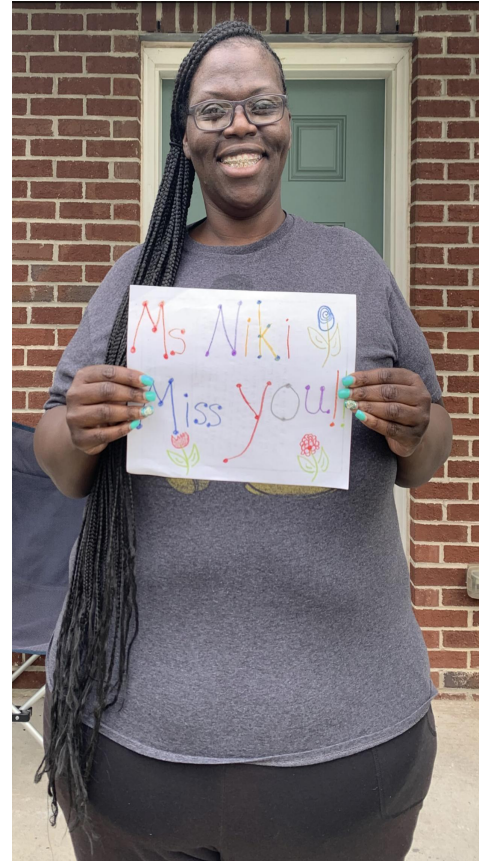 Ms Niki
Miss you!!